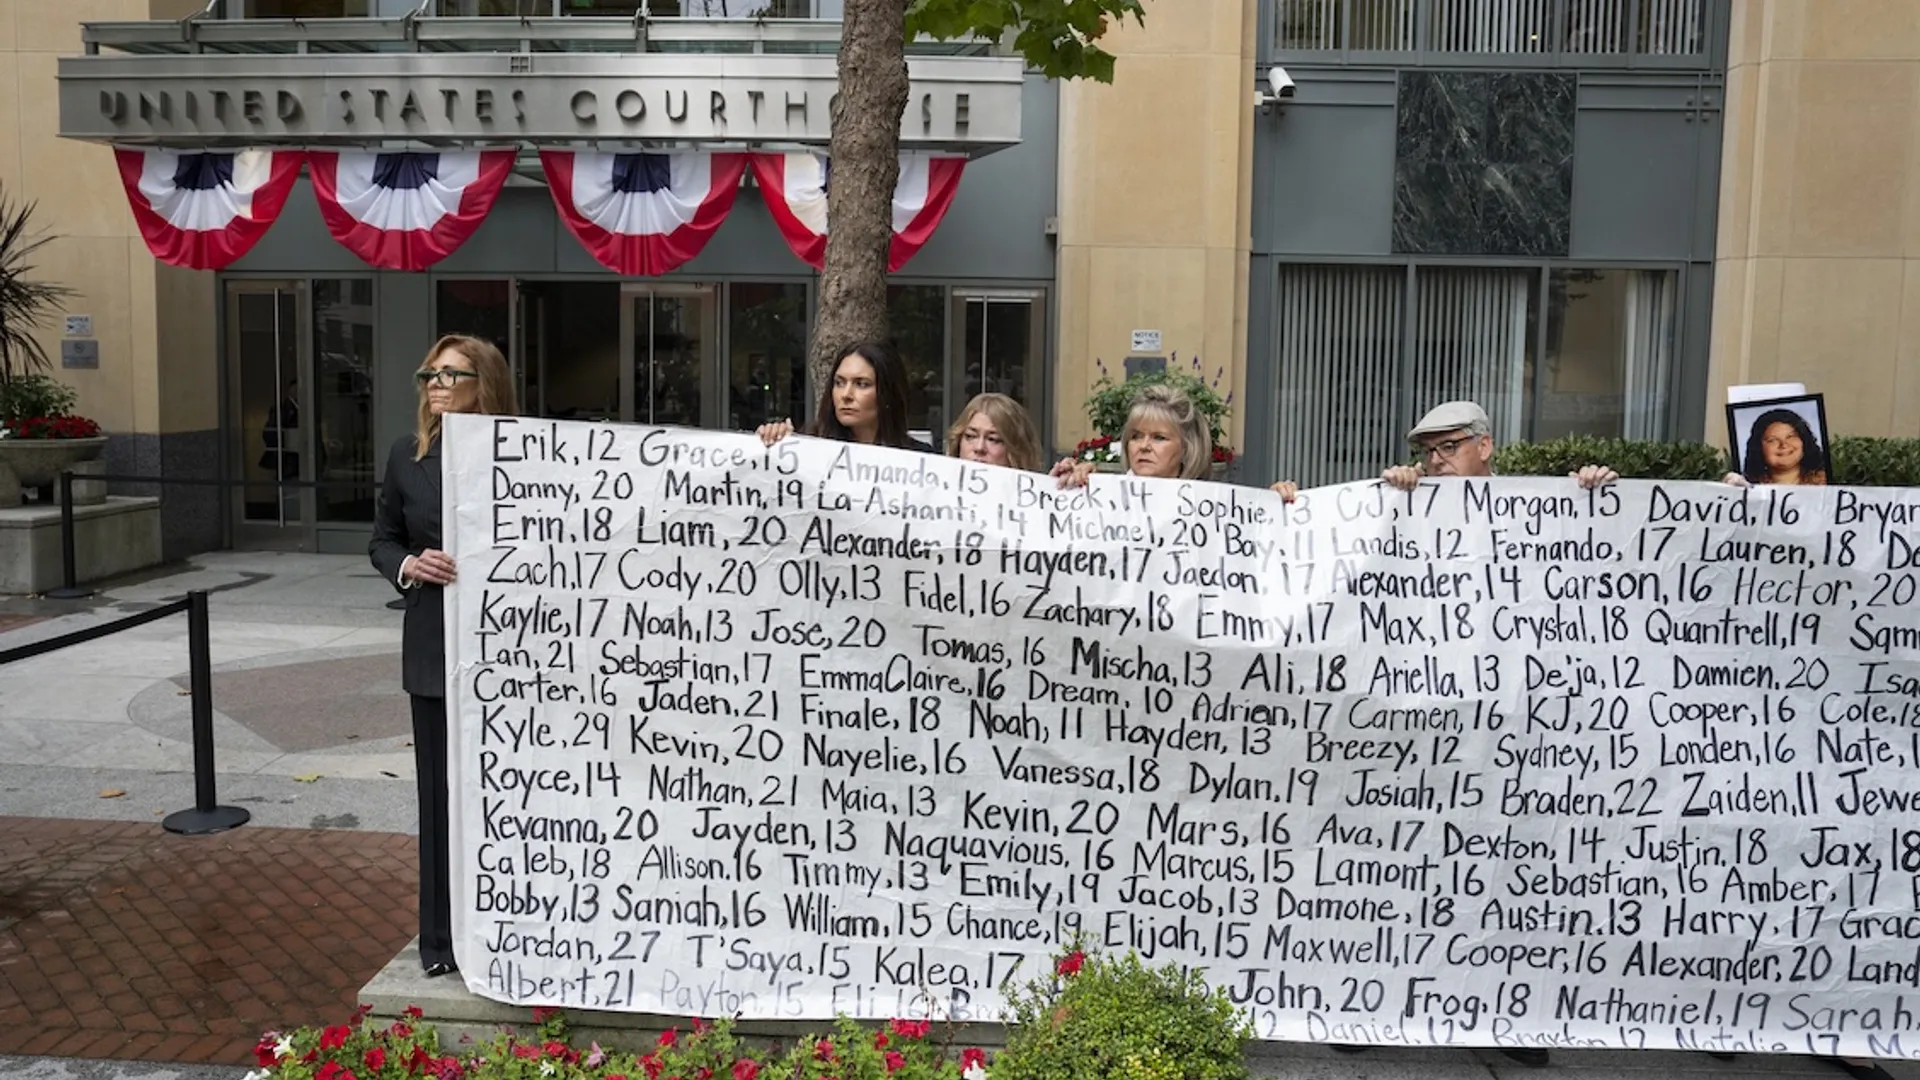 UNITED STATES COURTHOUSE
NOTICE
NOTICE
Erik, 12 Grace, 15 Amanda, 15 Breck, 14 Sophie, 13 CJ, 17 Morgan, 15 David, 16 Bryan
Danny, 20 Martin, 19 La-Ashanti, 14 Michael, 20 Bay, 11 Landis, 12 Fernando, 17 Lauren, 18
Erin, 18 Liam, 20 Alexander, 18 Hayden, 17 Jaedon, 17 Alexander, 14 Carson, 16 Hector, 20
Zach, 17 Cody, 20 Olly, 13 Fidel, 16 Zachary, 18 Emmy, 17 Max, 18 Crystal, 18 Quantrell, 19 Sam
Kaylie, 17 Noah, 13 Jose, 20 Tomas, 16 Mischa, 13 Ali, 18 Ariella, 13 De'ja, 12 Damien, 20 Isa
Ian, 21 Sebastian, 17 EmmaClaire, 16 Dream, 10 Adrian, 17 Carmen, 16 KJ, 20 Cooper, 16 Cole, 18
Carter, 16 Jaden, 21 Finale, 18 Noah, 11 Hayden, 13 Breezy, 12 Sydney, 15 Londen, 16 Nate, 1
Kyle, 29 Kevin, 20 Nayelie, 16 Vanessa, 18 Dylan, 19 Josiah, 15 Braden, 22 Zaiden, 11 Jewe
Royce, 14 Nathan, 21 Maia, 13 Kevin, 20 Mars, 16 Ava, 17 Dexton, 14 Justin, 18 Jax, 18
Kevanna, 20 Jayden, 13 Naquavious, 16 Marcus, 15 Lamont, 16 Sebastian, 16 Amber, 17
Caleb, 18 Allison, 16 Timmy, 13 Emily, 19 Jacob, 13 Damone, 18 Austin, 13 Harry, 17 Grac
Bobby, 13 Saniah, 16 William, 15 Chance, 19 Elijah, 15 Maxwell, 17 Cooper, 16 Alexander, 20 Land
Jordan, 27 T'Saya, 15 Kalea, 17 John, 20 Frog, 18 Nathaniel, 19 Sarah,
Albert, 21 Payton, 15 Eli, 16 Daniel, 12 Braxton, 12 Natalie, 17